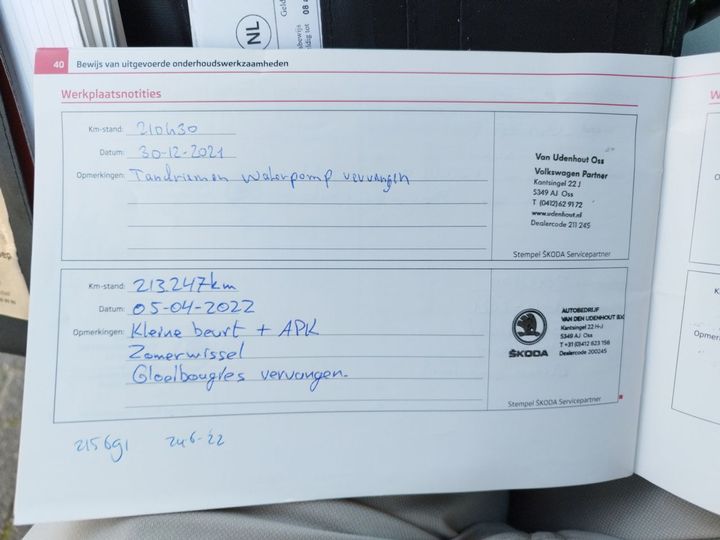 NL
Geld
08
40 Bewijs van uitgevoerde onderhoudswerkzaamheden
Werkplaatsnotities
Km-stand: 210430
Datum: 30-12-2021
Opmerkingen: Tandriem en Waterpomp vervangen
Van Udenhout Oss
Volkswagen Partner
Kantsingel 22 J
5349 AJ Oss
T (0412) 62 91 72
www.udenhout.nl
Dealercode 211 245
Stempel ŠKODA Servicepartner
Km-stand: 213.247km
Datum: 05-04-2022
Opmerkingen: Kleine beurt + APK
Zomerwissel
Gloeibougies vervangen.
ŠKODA
AUTOBEDRIJF
VAN DEN UDENHOUT B.V.
Kantsingel 22 H-J
5349 AJ Oss
T +31 (0)412 623 156
Dealercode 200245
Stempel ŠKODA Servicepartner
215691 24 6-22